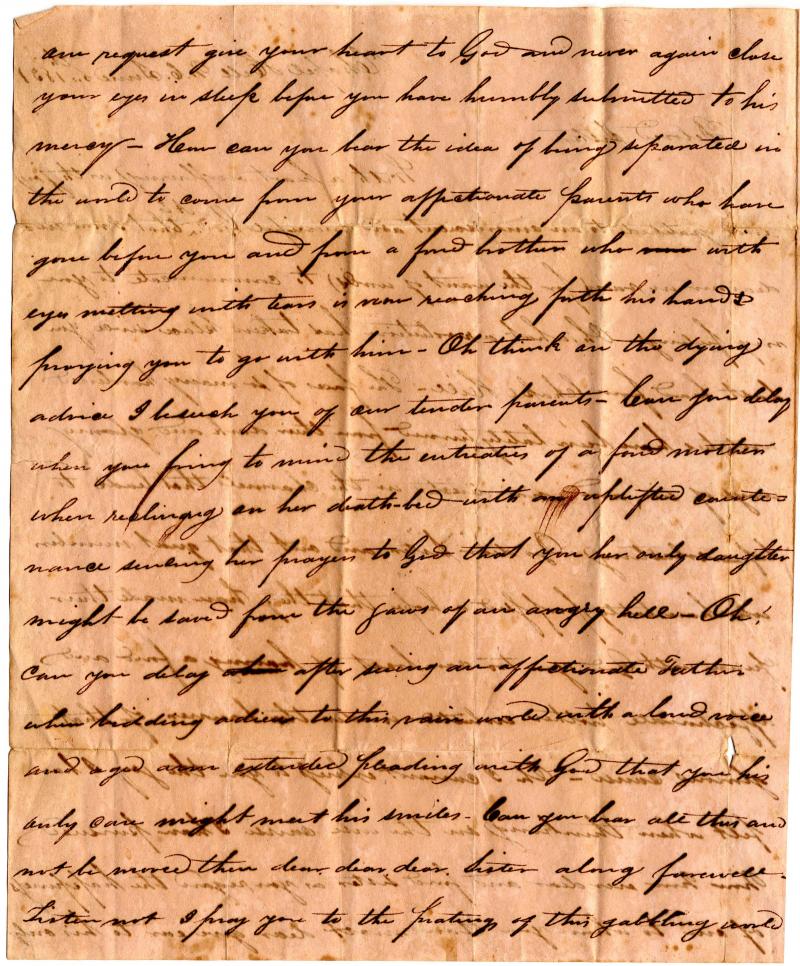 our request give your heart to God and never again close
your eyes in sleep before you have humbly submitted to his
mercy – How can you bear the idea of being separated in
the world to come from your affectionate parents who have
gone before you and from a fond brother who with
eyes melting with tears is now reaching forth his hands
praying you to go with him – Oh think on the dying
advice I beseech you of our tender parents – Can you delay
when you bring to mind the entreaties of a fond mother
when reclining on her death-bed with uplifted counte=
nance sending her prayers to God that you her only daughter
might be saved from the jaws of an angry hell – Oh!
can you delay after seeing an affectionate Father
when bidding adieu to this vain world with a loud voice
and aged arm extended pleading with God that you his
only care might meet his smiles – Can you bear all this and
not be moved then dear, dear, dear, Sister along farewell –
Listen not I pray you to the pratings of this gabbling world